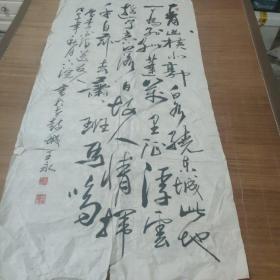 青山横北郭白水绕东城此地
一为别孤蓬万里征浮云
游子意落日故人情挥
手自兹去萧萧班马鸣
李白诗送友人